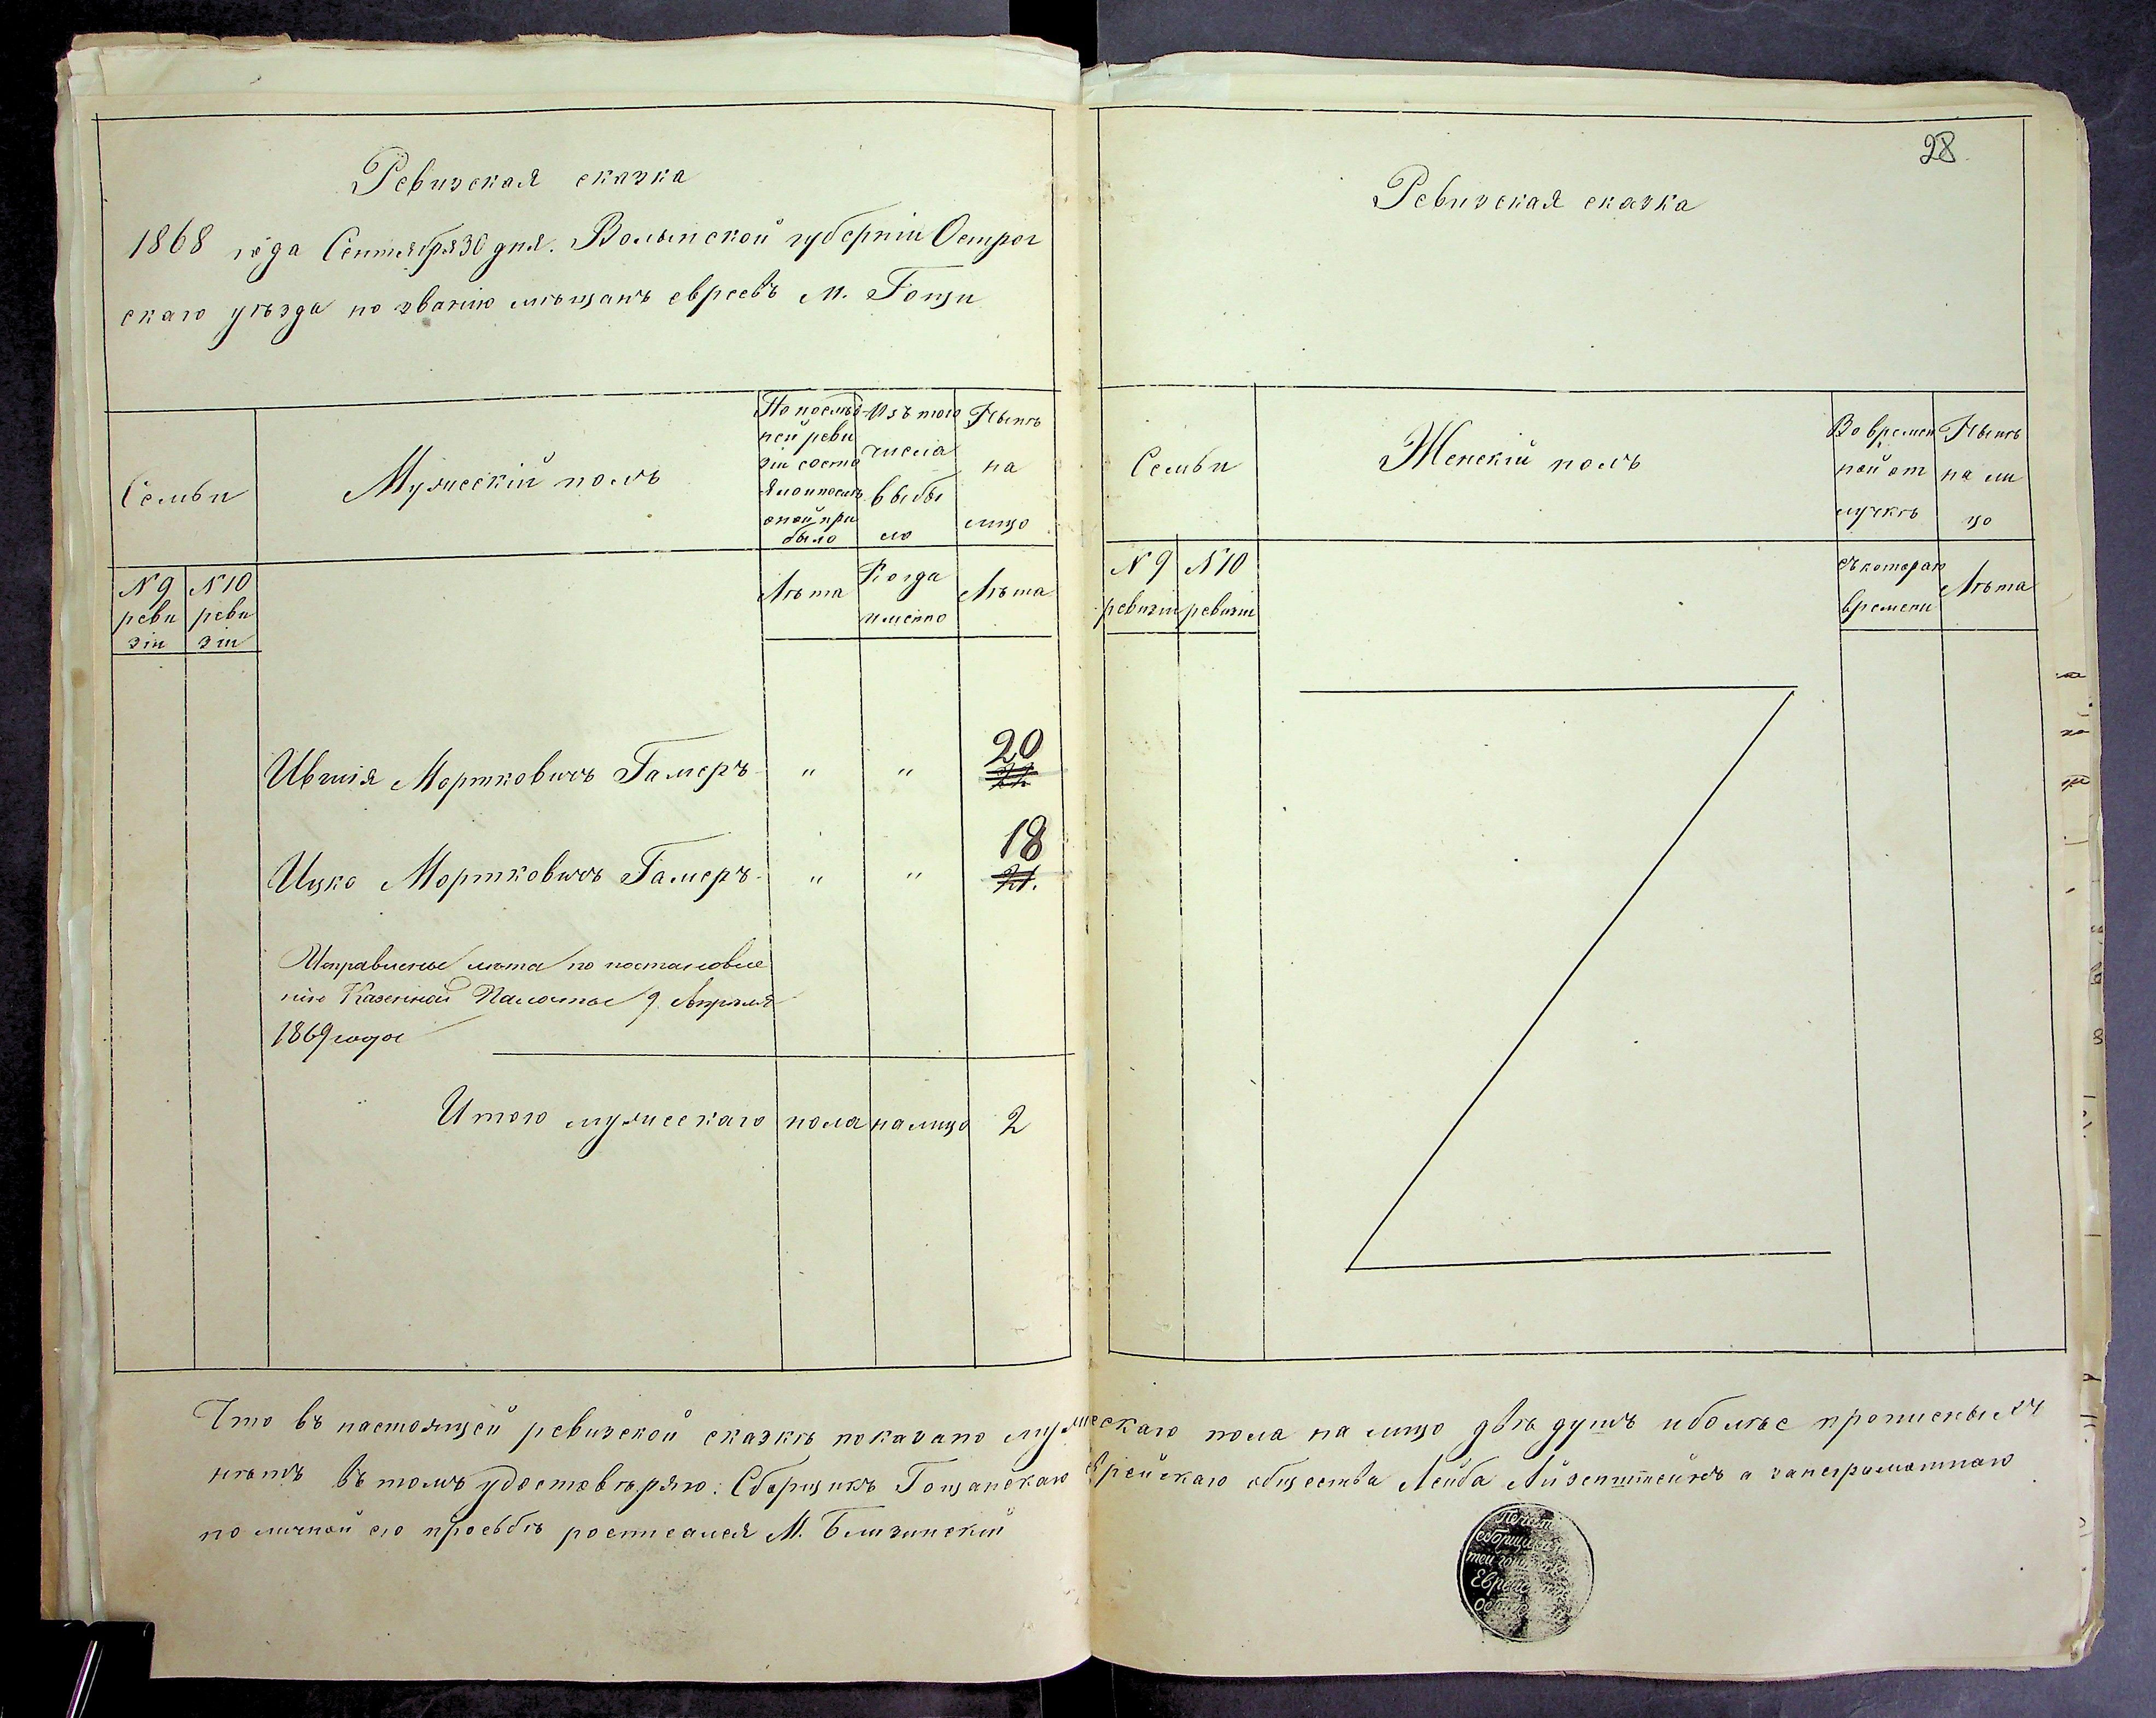 Ревизская сказка
1868 года Сентября 30 дня. Волынской губерніи Острог
скаго уѣзда по званію мѣщанъ евреевъ м. Гощи
Семьи
Мужескій полъ
По послѣд
ней реви
зіи состо
яло и послѣ
оной при
было
Изъ того
числа
выбы
ло
Нынѣ
на
лицо
№ 9
реви
зіи
№ 10
реви
зіи
Лѣта
Когда
именно
Лѣта
Ившія Мортковичъ Гамеръ " " 20
22
Ицко Мортковичъ Гамеръ " " 18
21.
Исправлены лѣта по постановле
нію Казенной Палаты 9 Апрѣля
1869 года
Итого мужескаго пола налицо 2
28
Ревизская сказка
Семьи
Женскій полъ
Во времен
ной от
лучкѣ
Нынѣ
на ли
цо
№ 9
ревизіи
№ 10
ревизіи
съ котораго
времени
Лѣта
Что въ настоящей ревизской сказкѣ показано мужескаго пола на лицо двѣ душъ и болѣе прописныхъ
нѣтъ въ томъ удостовѣряю: Сборщикъ Гощанскаго Еврейскаго общества Лейба Айзенштейнъ а за неграмотнаго
по личной его просьбѣ росписался М. Близинскій
Печать
сборщика
Еврей